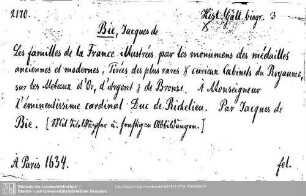 2170.
Hist. Gall. biogr. 3
Bie, Jacques de
Les familles de la France illustrees par les monumens des médailles
anciennes et modernes, Tirées des plus rares & curieux Cabinets du Royaume,
sur les Metaux d'Or, d'Argent & de Bronze. A Monseigneur
l'éminentissime cardinal Duc de Richelieu. Par Jacques de
Bie. [Mit Titelkupfer u. sonstigen Abbildungen.]
A Paris 1634.
fol.